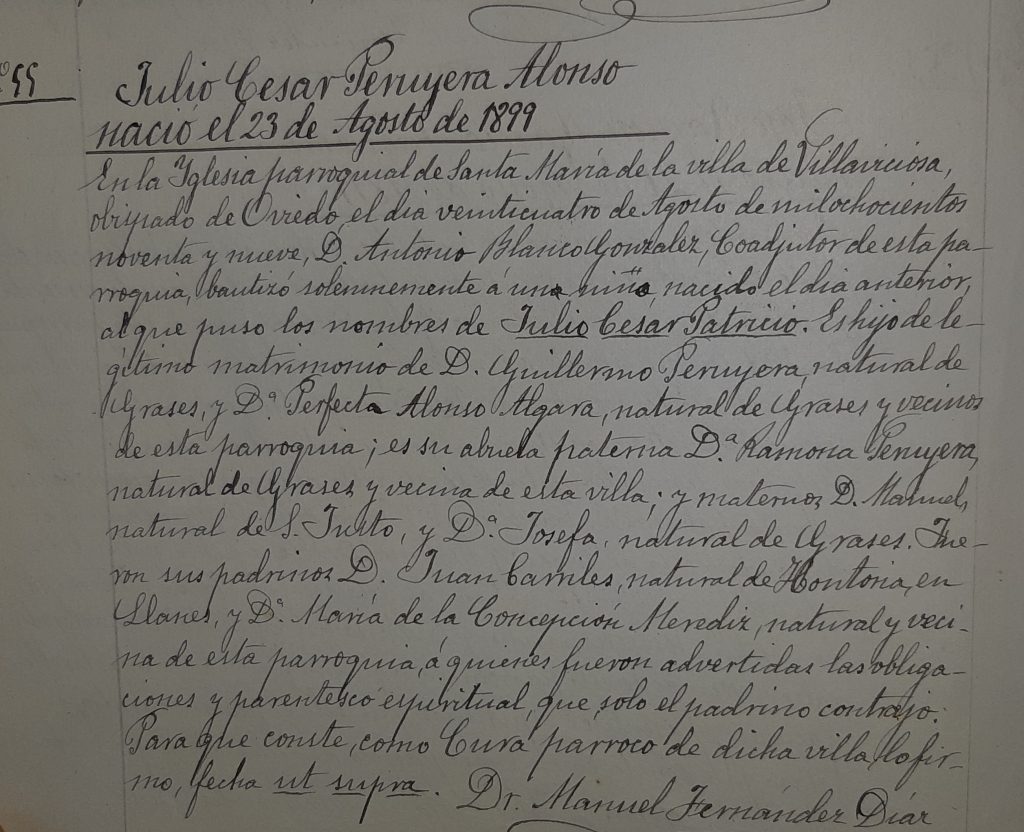 º 55
Julio Cesar Peruyera Alonso
nació el 23 de Agosto de 1899
En la Iglesia parroquial de Santa María de la villa de Villaviciosa,
obispado de Oviedo, el dia veinticuatro de Agosto de mil ochocientos
noventa y nueve, D. Antonio Blanco Gonzalez, Coadjutor de esta pa-
rroquia, bautizó solemnemente á un niño, nacido el dia anterior,
al que puso los nombres de Julio Cesar Patricio. Es hijo de le-
gítimo matrimonio de D. Guillermo Peruyera, natural de
Grases, y Dª Perfecta Alonso Algara, natural de Grases y vecinos
de esta parroquia; es su abuela paterna Dª Ramona Peruyera,
natural de Grases y vecina de esta villa; y maternos D. Manuel,
natural de S. Justo, y Dª Josefa, natural de Grases. Fue-
ron sus padrinos D. Juan Carriles, natural de Hontoria, en
Llanes, y Dª María de la Concepción Merediz, natural y veci-
na de esta parroquia, á quienes fueron advertidas las obliga-
ciones y parentesco espiritual, que solo el padrino contrajo.
Para que conste, como Cura parroco de dicha villa, lo fir-
mo, fecha ut supra. Dr. Manuel Fernández Díaz